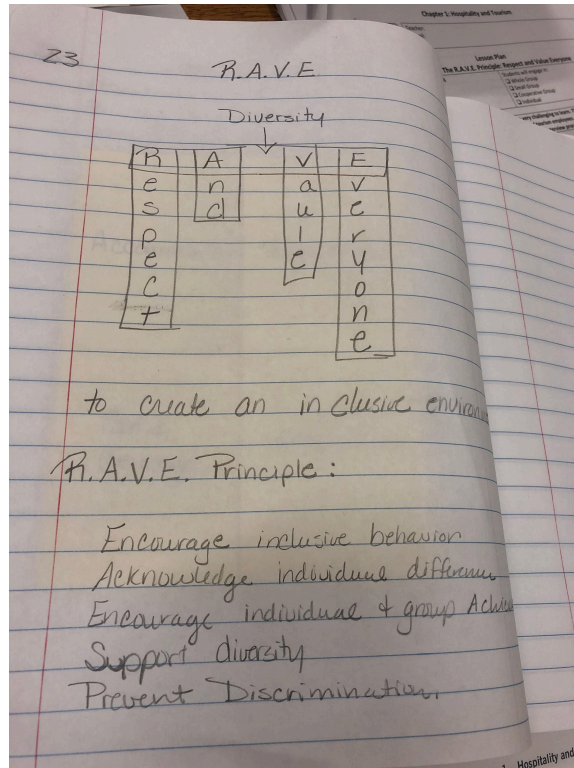 Chapter 1: Hospitality and Tourism
Lesson Plan
The R.A.V.E. Principle: Respect and Value Everyone
Students will engage in:
Whole Group
Small Group
Cooperative Group
Individual
23
R.A.V.E
Diversity
R A V E
e n a v
s d u e
p l r
e e y
c o
t n
e
to create an inclusive environ
R.A.V.E. Principle:
Encourage inclusive behavior
Acknowledge individual differenc
Encourage individual & group Achie
Support diversity
Prevent Discrimination.
Hospitality and